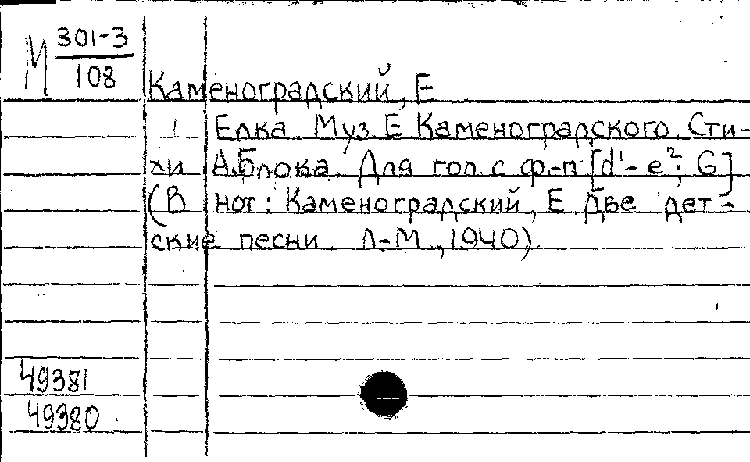 М 301-3
108
Каменоградский, Е
1 Елка. Муз. Е Каменоградского. Сти-
хи А.Блока. Для гол. с ф-п [d¹- e²; G]
(В нот: Каменоградский, Е. Две дет-
ские песни. Л-М., 1940).
49381
49380